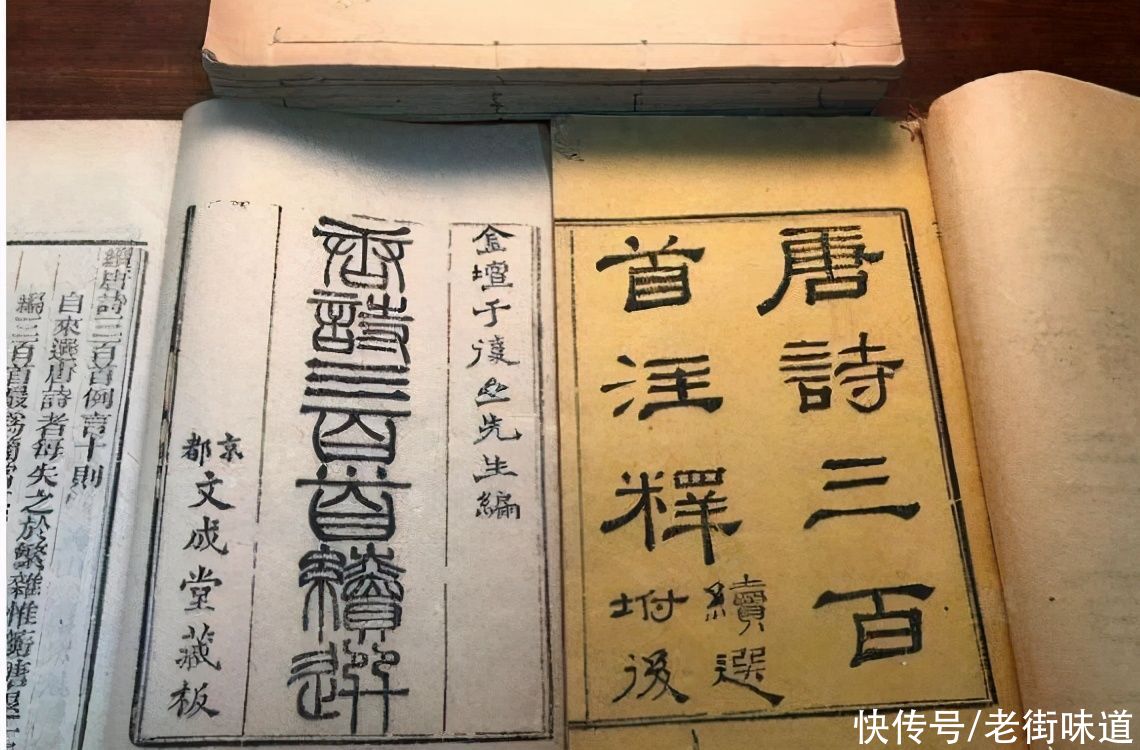 唐詩三百
首注釋
續選
坿後
金壇于復之先生編
唐詩三百首續選
京都
文成堂藏板
續唐詩三百首例言十則
自來選唐詩者每失之於繁雜惟蘅塘退
編三百首最爲簡
快传号/老街味道